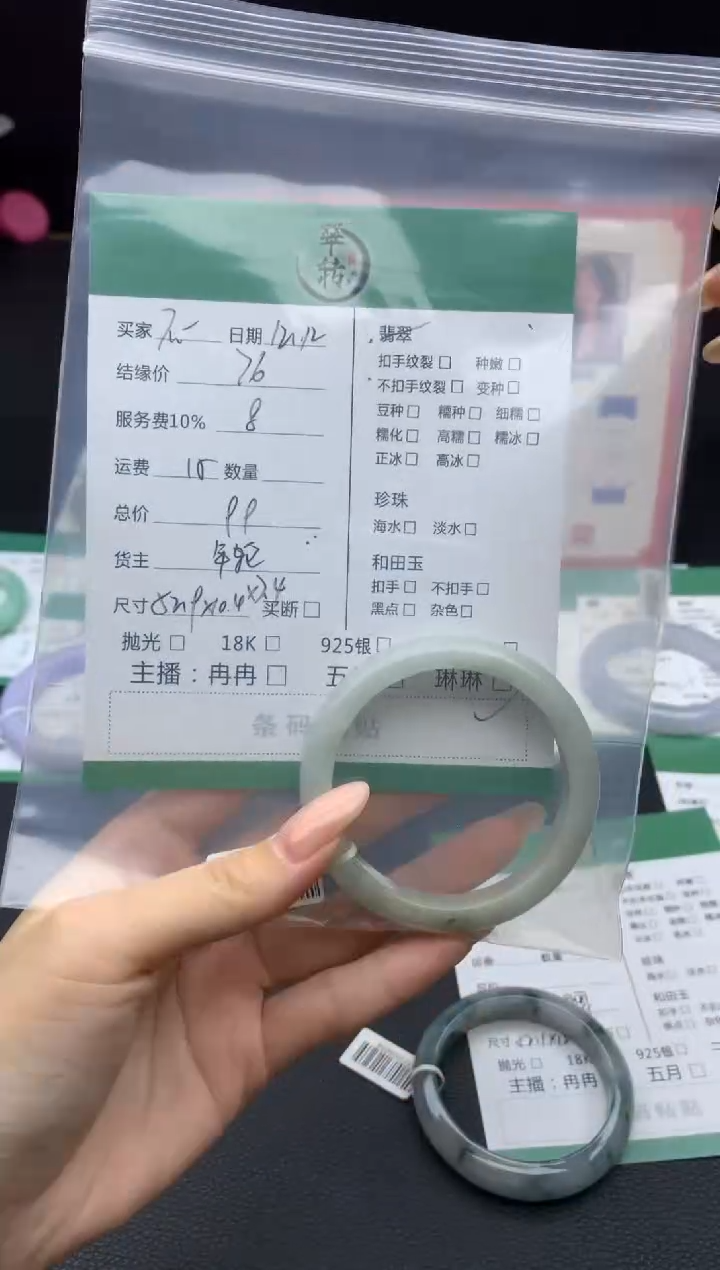 华转
买家 日期 12.12
结缘价 76
服务费10% 8
运费 15 数量
总价 99
货主 年轮
尺寸 买断□
抛光 □ 18K □ 925银□
主播：冉冉 □ 五 □ 琳琳 □
条码 贴
翡翠
扣手纹裂 □ 种嫩 □
不扣手纹裂 □ 变种□
豆种□ 糯种□ 细糯□
糯化□ 高糯□ 糯冰□
正冰□ 高冰□
珍珠
海水□ 淡水□
和田玉
扣手□ 不扣手□
黑点□ 杂色□
数量
和田玉
尺寸
抛光 □ 18K 925银□
主播：冉冉 五月 □